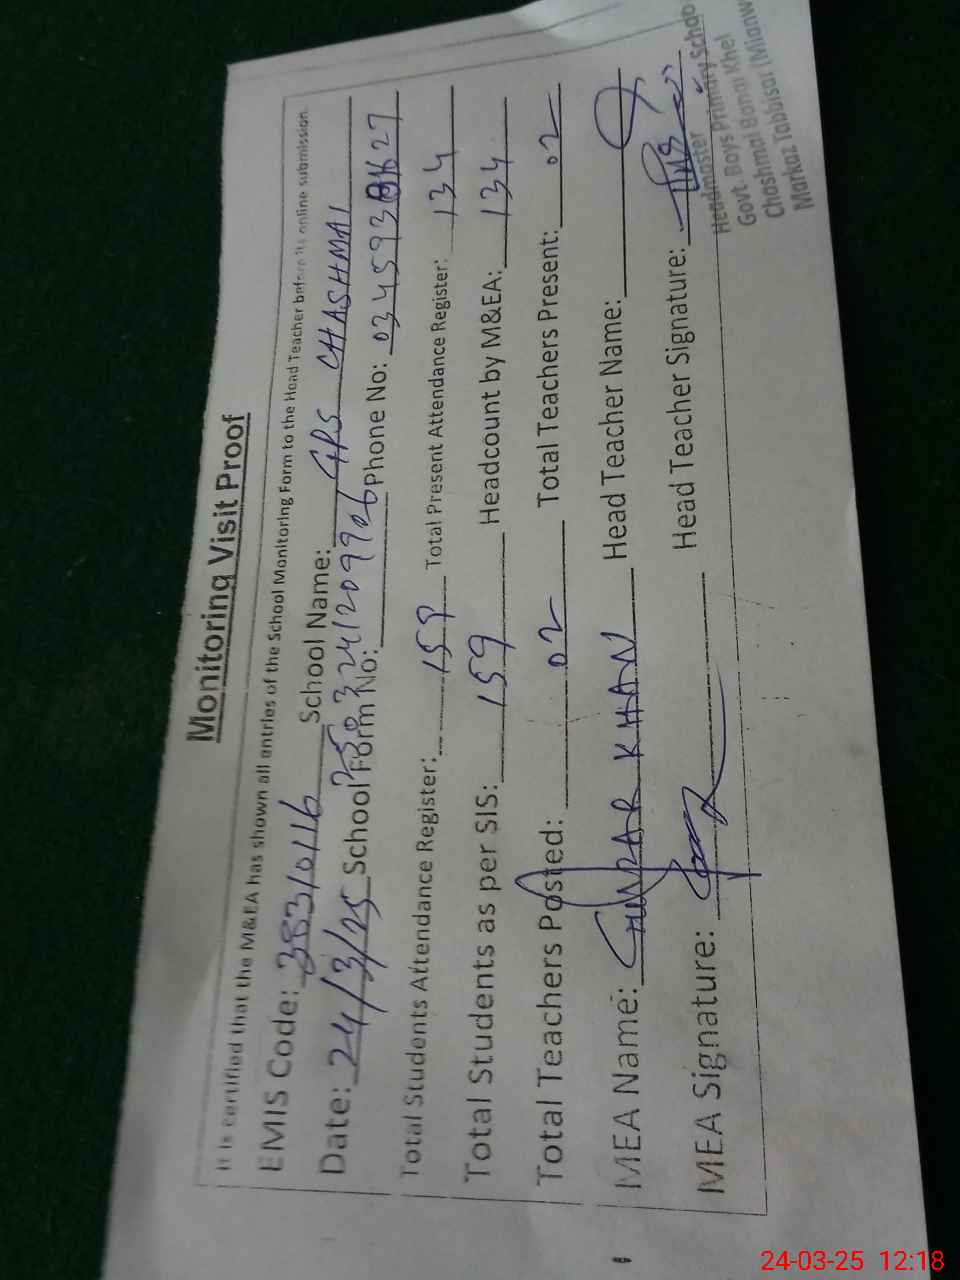 Monitoring Visit Proof
It is certified that the M&EA has shown all entries of the School Monitoring Form to the Head Teacher before its online submission.
EMIS Code: 38310116 School Name: GPS CHASHMAI
Date: 24/3/25 School Form No: 25032412099706 Phone No: 0345938 27
Total Students Attendance Register: 159 Total Present Attendance Register: 134
Total Students as per SIS: 159 Headcount by M&EA: 134
Total Teachers Posted: 02 Total Teachers Present: 02
MEA Name: KHAN Head Teacher Name:
MEA Signature: Head Teacher Signature:
Headmaster
Govt. Boys Primary Schoo
Chashmai Banai Khel
Markaz Tabbisar (Mianw
24-03-25 12:18